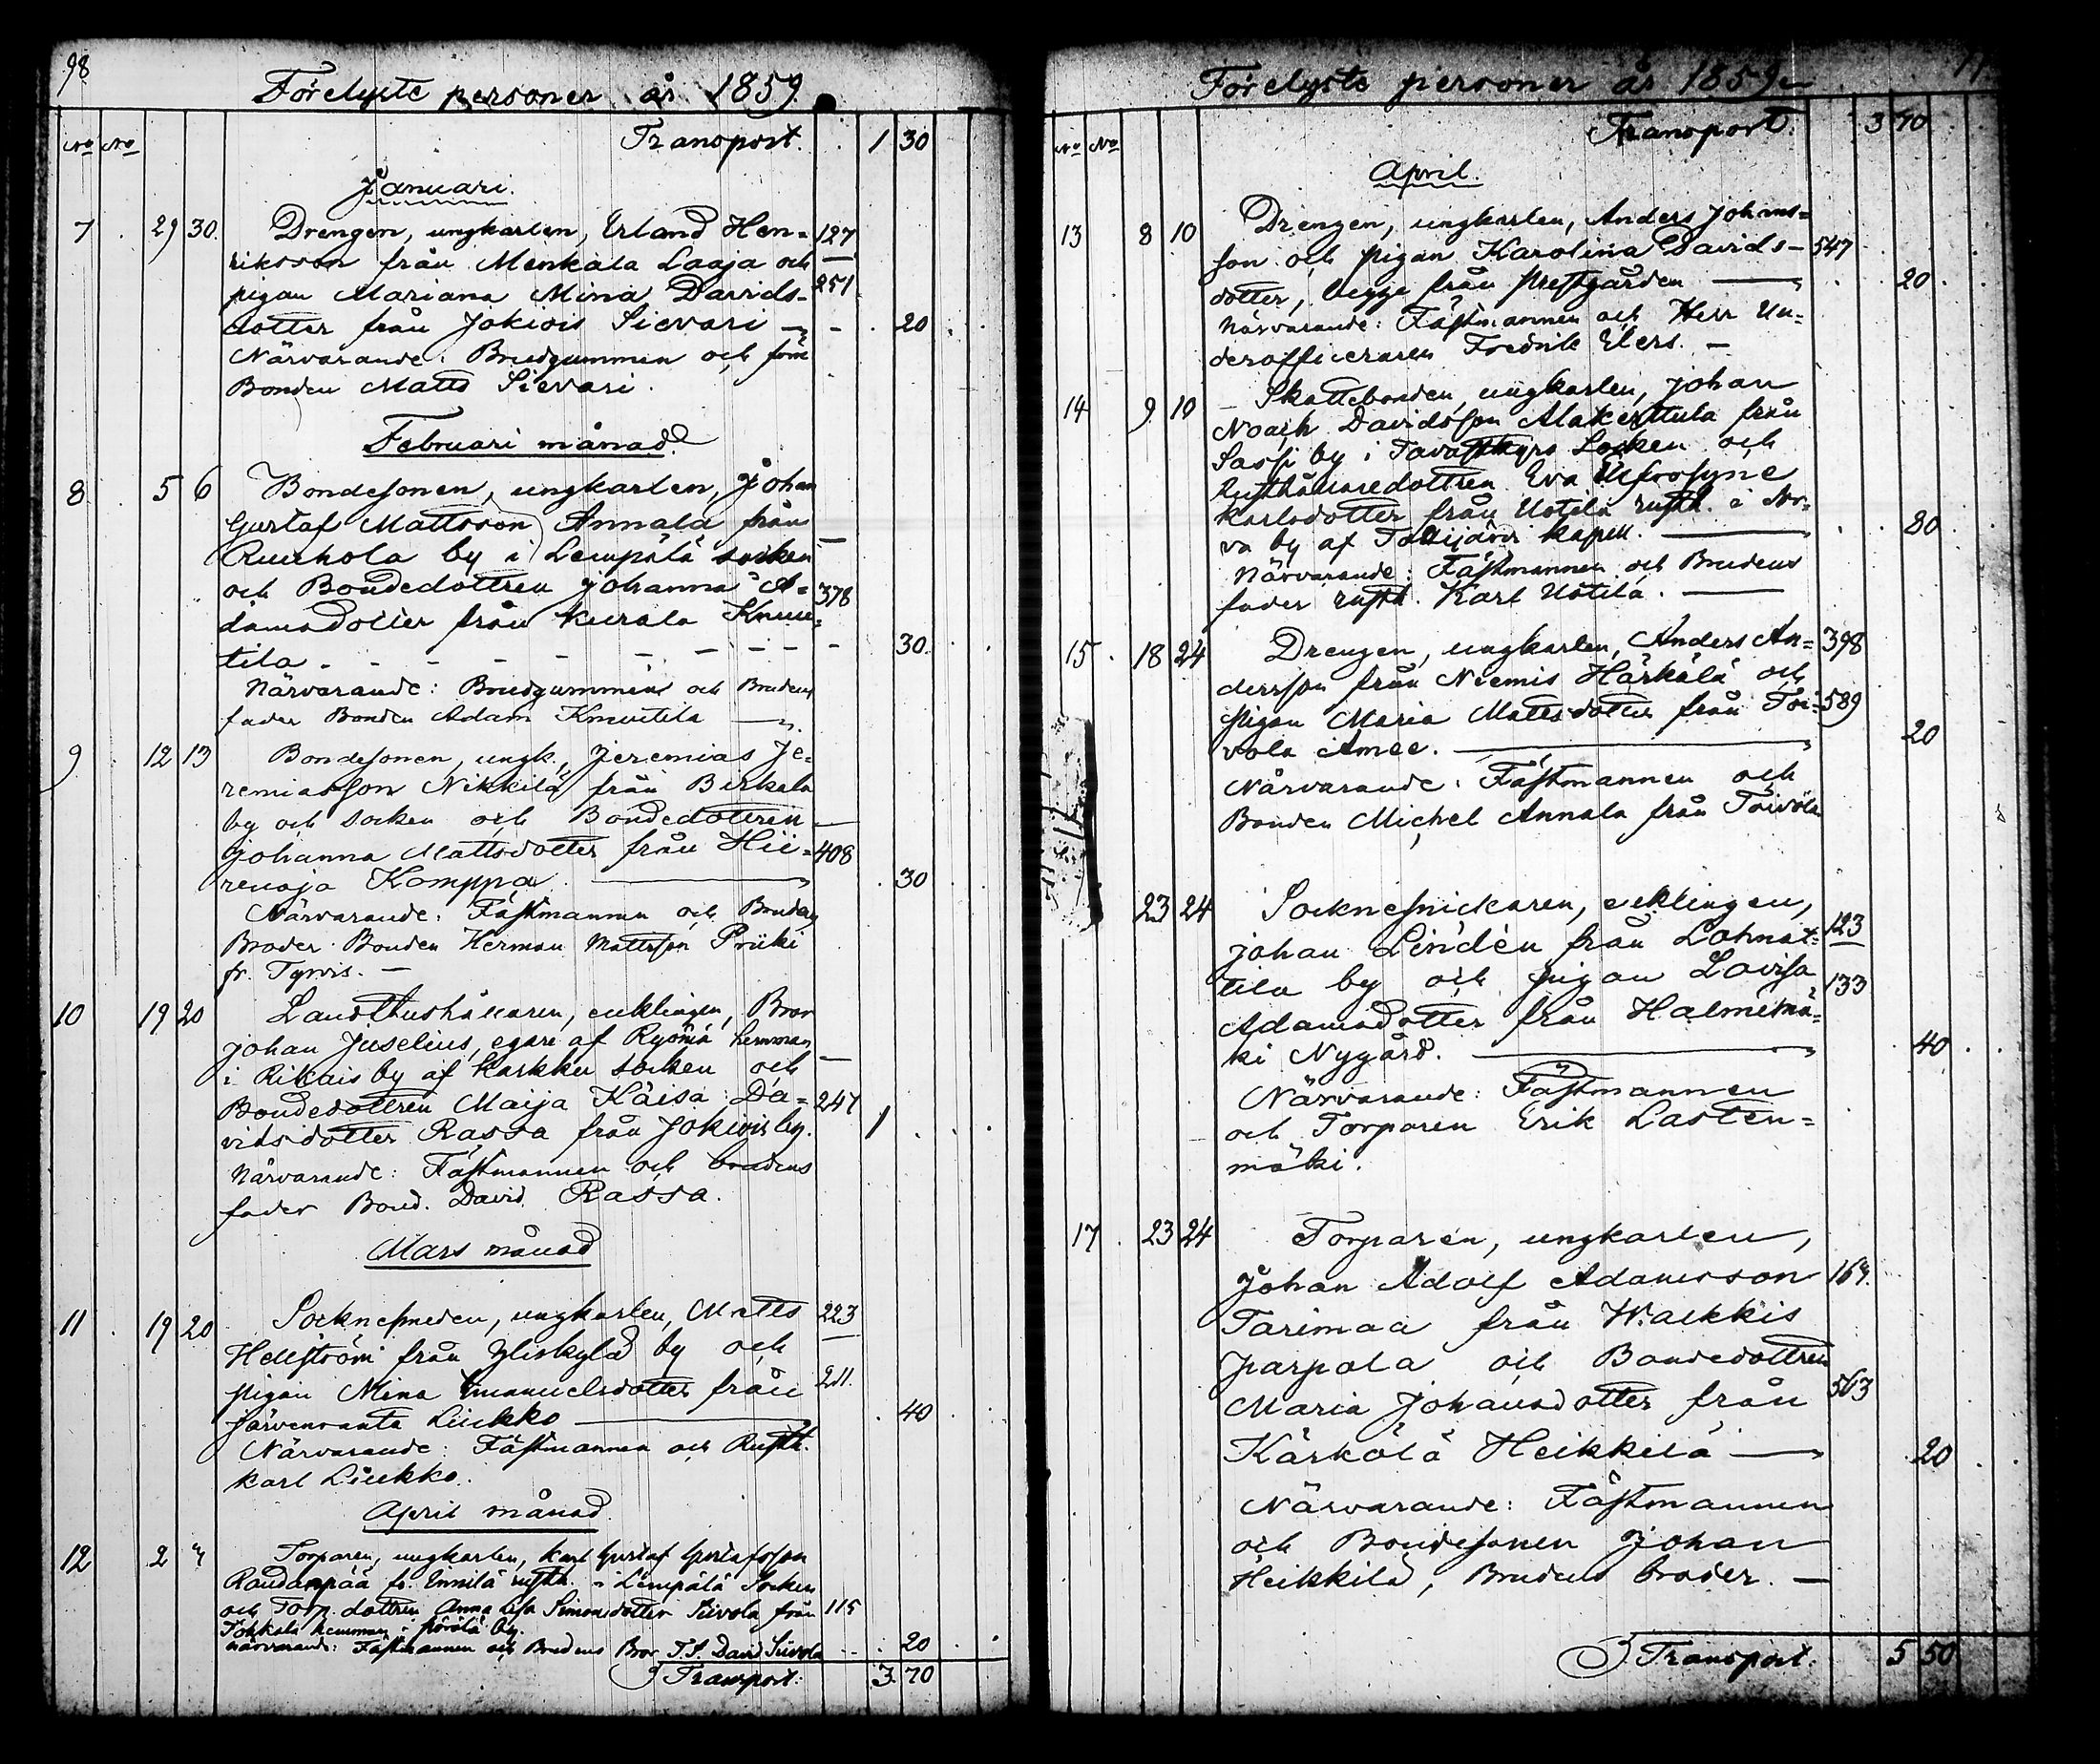 98
Förelyste personer år 1859.
No No Transport. 1 30
Januari.
7 29 30. Drengen, ungkarlen, Erland Hen= 127
riksson från Menkala Laaja och
pigan Mariana Mina Davids- 251
dotter från Jokiois Sievari 20
Närvarande: Brudgummen och förre
Bonden Matts Sievari.
Februari månad.
8 5 6 Bondesonen, ungkarlen, Johan
Gustaf Mattsson Annala från
by i Lempälä socken
och Bondedottren Johanna A= 378
damsdotter från Kurala Knuu=
tila 30.
Närvarande: Brudgummen och Brudens
fader Bonden Adam Knuutila
9 12 13 Bondesonen, ungk., Jeremias Je=
remiasson Nikkilä från Birkala
by och socken och Bondedottren
Johanna Mattsdotter från Hii= 408
renoja Komppa 30
Närvarande: Fästmannen och Brudens
Broder Bonden Herman Mattsson Priiki
fr. Tyrvis.
10 19 20 Landthushållaren, enklingen, Bror
Johan Juselius, egare af hemman
i by af Karkku socken och
Bondedottren Maija Kaisa Da= 247
vidsdotter Rassa från Jokiois by. 1
Närvarande: Fästmannen och brudens
fader Bond. David Rassa.
Mars månad
11 19 20 Socknesmeden, ungkarlen, Matts 223
Hellström från Yliskylä by och
pigan Mina Emanuelsdotter från 211.
Järvenranta Liukko 40
Närvarande: Fästmannen och Rusth.
Karl Liukko.
April månad.
12 2 3 Torparen, ungkarlen, Karl Gustaf Gustafsson
Raudanpää fr. Innilä rusth. i Lempälä Socken
och Torp. dottren Anna Lisa Simonsdotter Siivola från 115
hemman i by.
Närvarande: Fästmannen och Brudens Bror T.S. David Siivola 20
Transport: 3 70
Förelyste personer år 1859
No No Transport: 3 70
April.
13 8 10 Drengen, ungkarlen, Anders Johans=
son och pigan Karolina Davids- 547
dotter, begge från Prestgården 20
Närvarande: Fästmannen och Herr Un=
derofficeraren Fredrik Elers.
14 9 10 Skattebonden, ungkarlen, Johan
Noach Davidsson Alakerttula från
Sassi by i Tavastkyro Socken och
Rusthållaredottren Eva Eufrosyne
Karlsdotter från Uotila rusth. i Sor=
va by af Tottijärvi kapell. 80
Närvarande: Fästmannen och Brudens
fader rusth. Karl Uotila.
15 18 24 Drengen, ungkarlen, Anders An= 398
dersson från Niemis Härkälä och
pigan Maria Mattsdotter från Toi= 589
vola Amee. 20
Närvarande: Fästmannen och
Bonden Michel Annala från Toivola
23 24 Socknesnickaren, enklingen,
Johan Lindén från Lohnat= 123
tila by och pigan Lovisa 133
Adamsdotter från Halmemä=
ki Nygård. 40
Närvarande: Fästmannen
och Torparen Erik Lasten=
mäki.
17 23 24 Torparen, ungkarlen,
Johan Adolf Adamsson 167.
Tarimaa från Waekkis
Parpola och Bondedottren
Maria Johansdotter från 563
Kärkölä Heikkilä 20
Närvarande: Fästmannen
och Bondesonen Johan
Heikkilä, Brudens broder.
Transport. 5 50